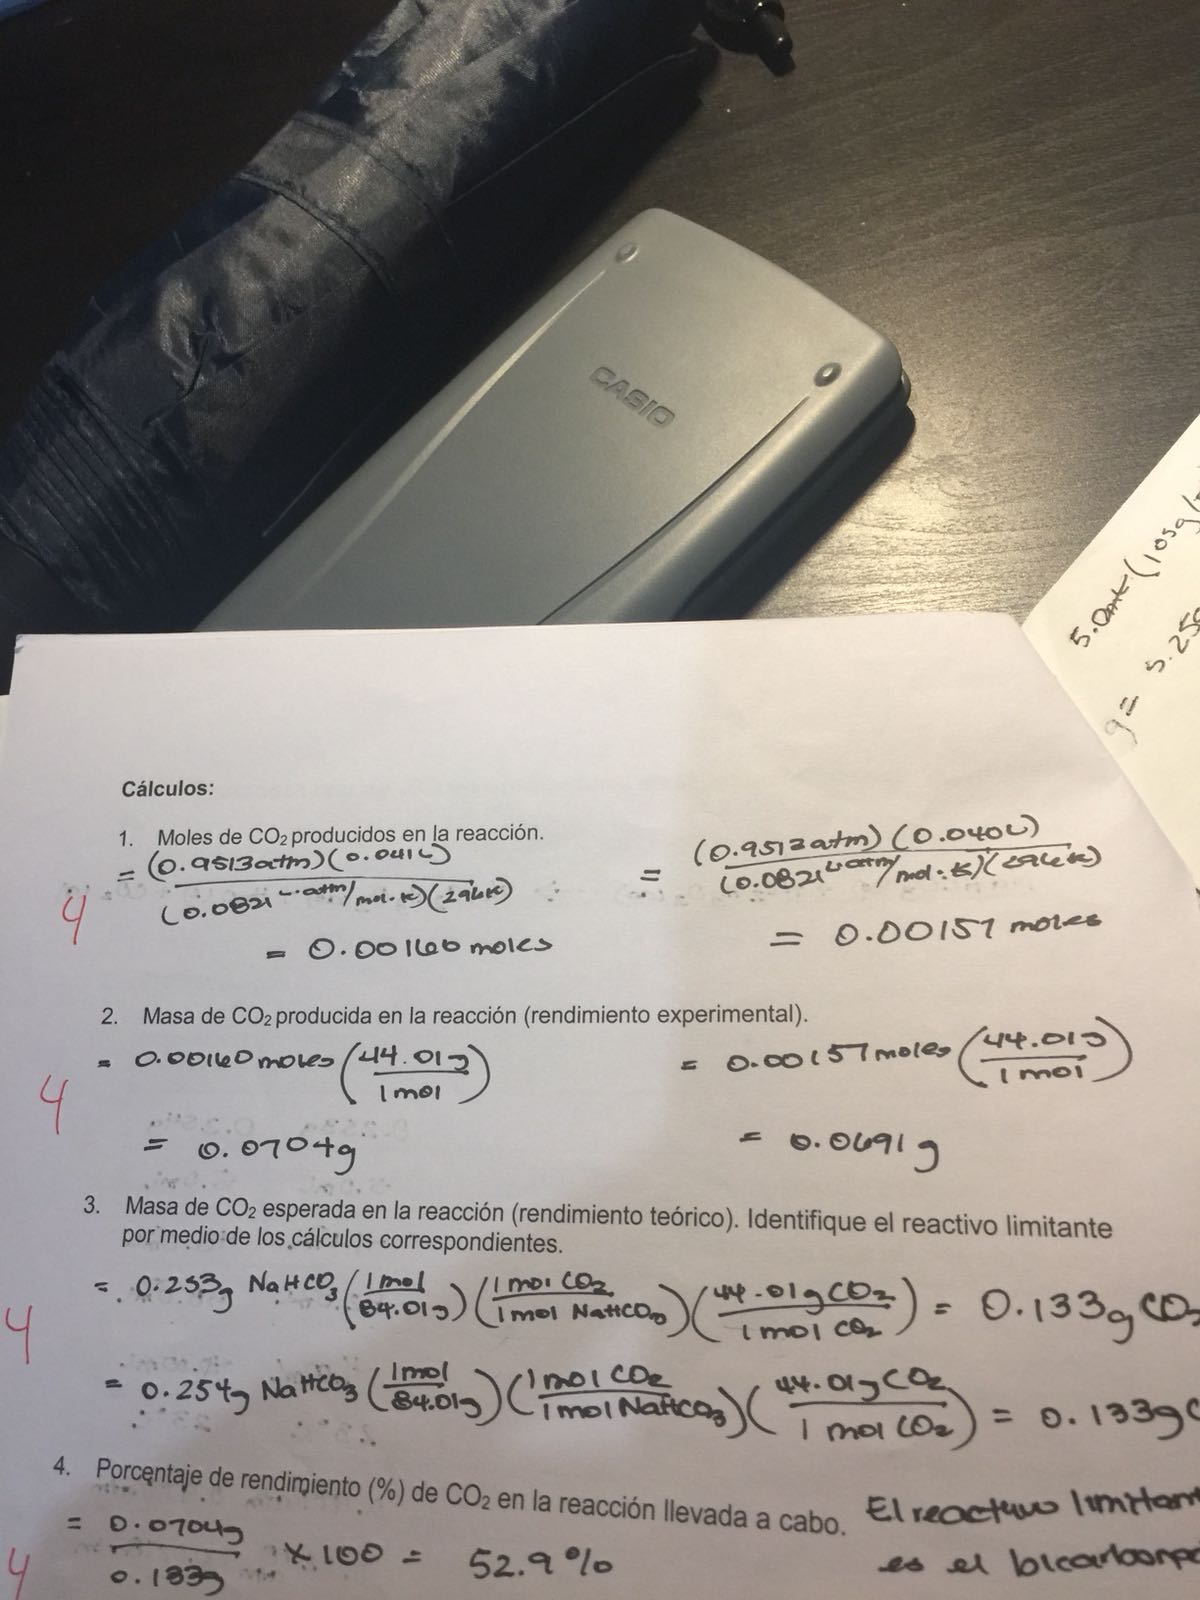 CASIO
5.0mL (105g/
g= 5.25g
Cálculos:
1. Moles de CO₂ producidos en la reacción.
= (0.9513atm)(0.041L) / (0.0821 L·atm/mol·K)(296K)
= (0.9513atm)(0.040L) / (0.0821 L·atm/mol·K)(296K)
4
= 0.00160 moles
= 0.00157 moles
2. Masa de CO₂ producida en la reacción (rendimiento experimental).
= 0.00160 moles (44.01g / 1mol)
= 0.00157 moles (44.01g / 1mol)
4
= 0.0704g
= 0.0691g
3. Masa de CO₂ esperada en la reacción (rendimiento teórico). Identifique el reactivo limitante
por medio de los cálculos correspondientes.
= 0.253g NaHCO₃ (1mol / 84.01g) (1mol CO₂ / 1mol NaHCO₃) (44.01g CO₂ / 1mol CO₂) = 0.133g CO₂
4
= 0.254g NaHCO₃ (1mol / 84.01g) (1mol CO₂ / 1mol NaHCO₃) (44.01g CO₂ / 1mol CO₂) = 0.133g C
4. Porcentaje de rendimiento (%) de CO₂ en la reacción llevada a cabo.
El reactivo limitant
es el bicarbona
= 0.0704g / 0.133g x 100 = 52.9%
4